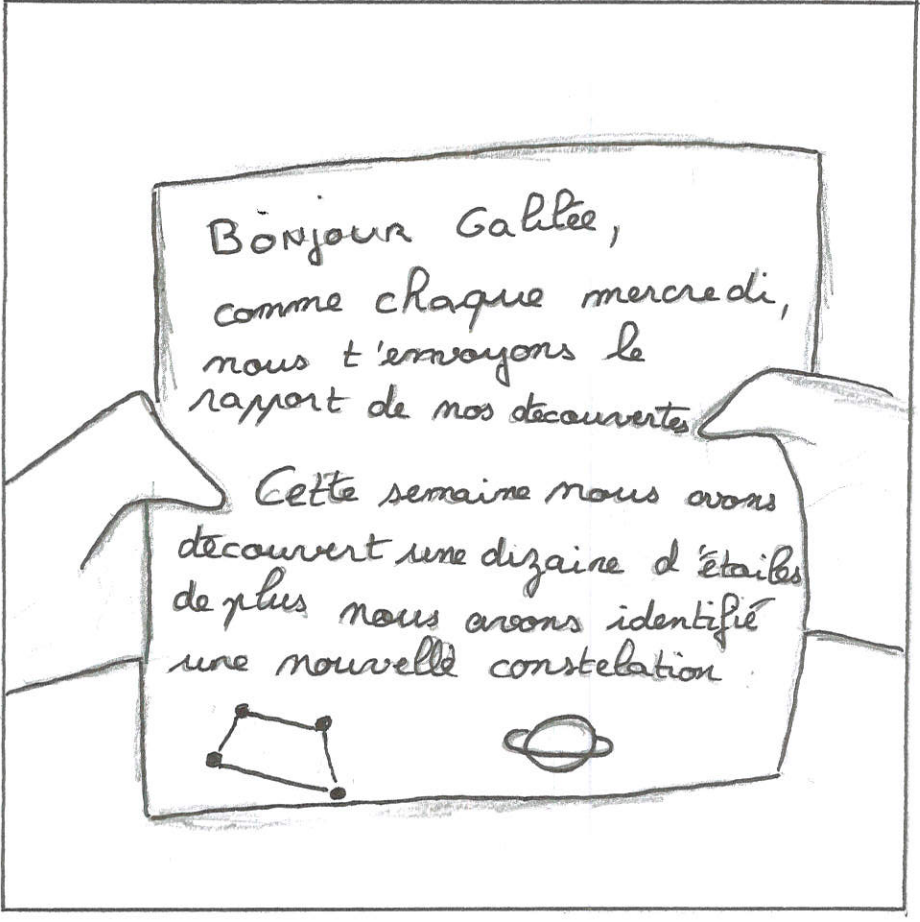 Bonjour Galilée,
comme chaque mercredi,
nous t'envoyons le
rapport de nos découvertes
Cette semaine nous avons
découvert une dizaine d'étoiles
de plus nous avons identifié
une nouvelle constelation